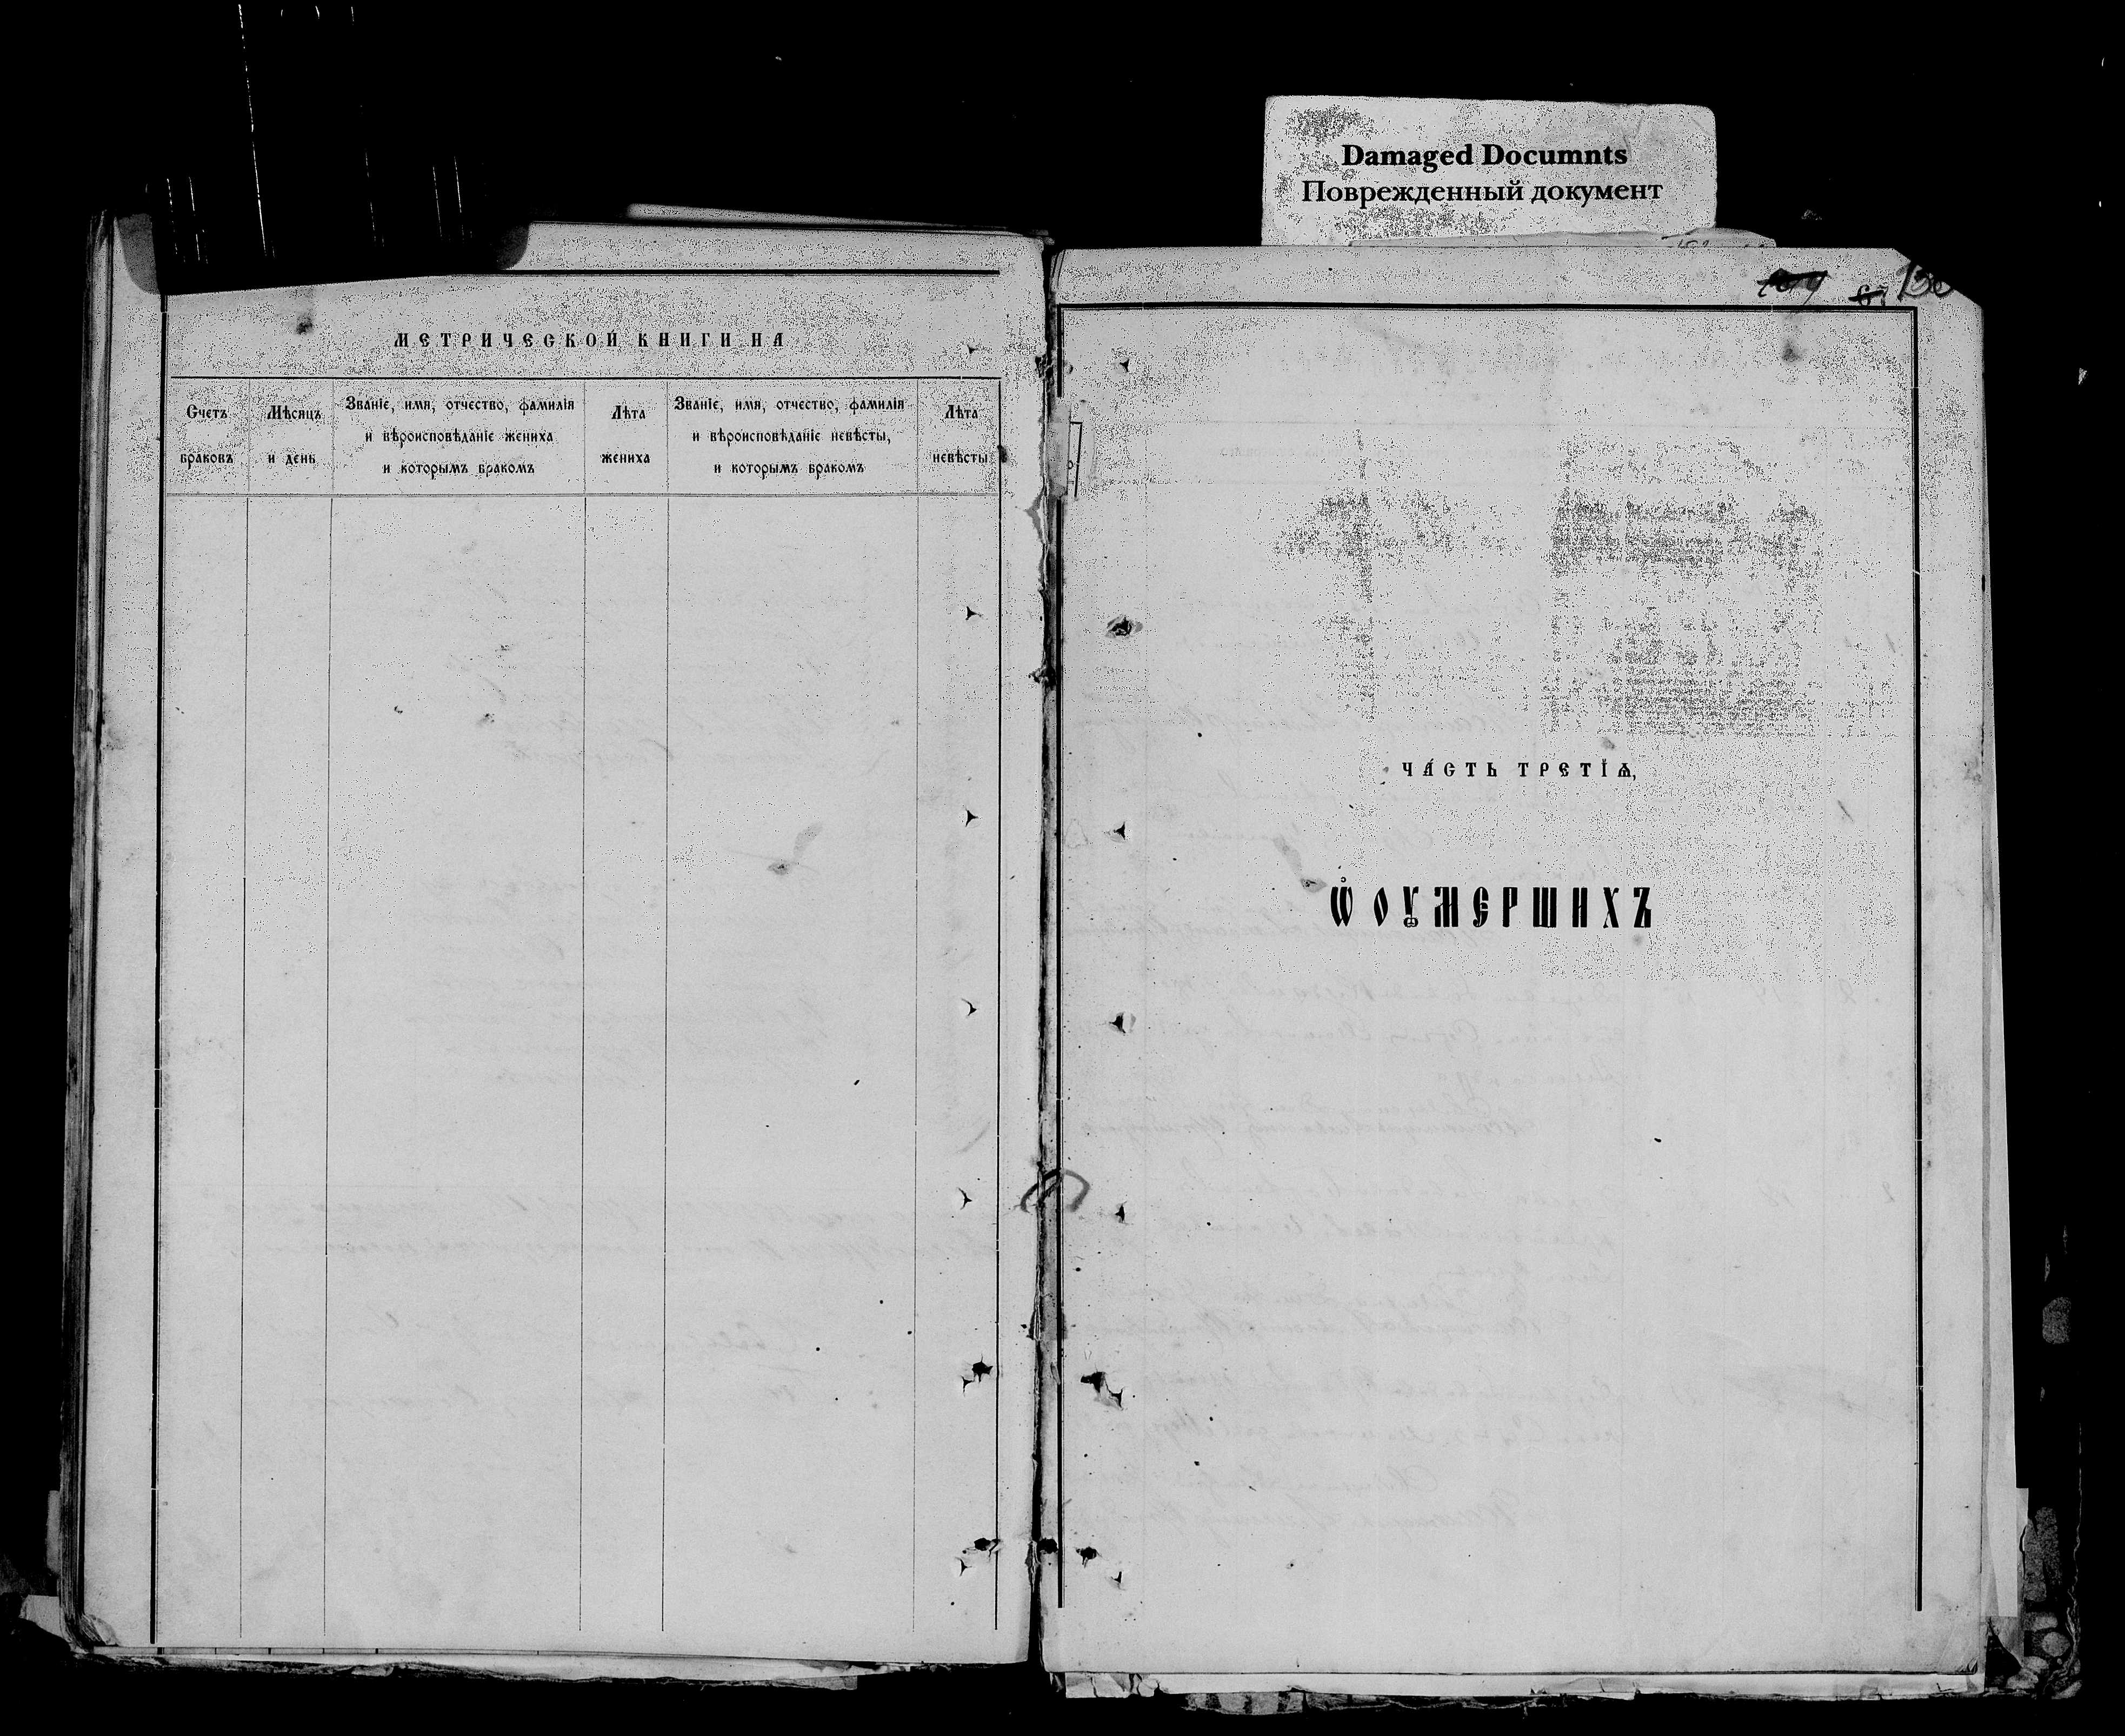 Damaged Documnts
Поврежденный документ
МЕТРИЧЕСКОЙ КНИГИ НА
Счетъ браковъ
Мѣсяцъ и день
Званіе, имя, отчество, фамилія
и вѣроисповѣданіе жениха
и которымъ бракомъ
Лѣта жениха
Званіе, имя, отчество, фамилія
и вѣроисповѣданіе невѣсты,
и которымъ бракомъ
Лѣта невѣсты
ЧА́СТЬ ТРЕТІѦ,
Ѽ ОУМЕРШИХЪ